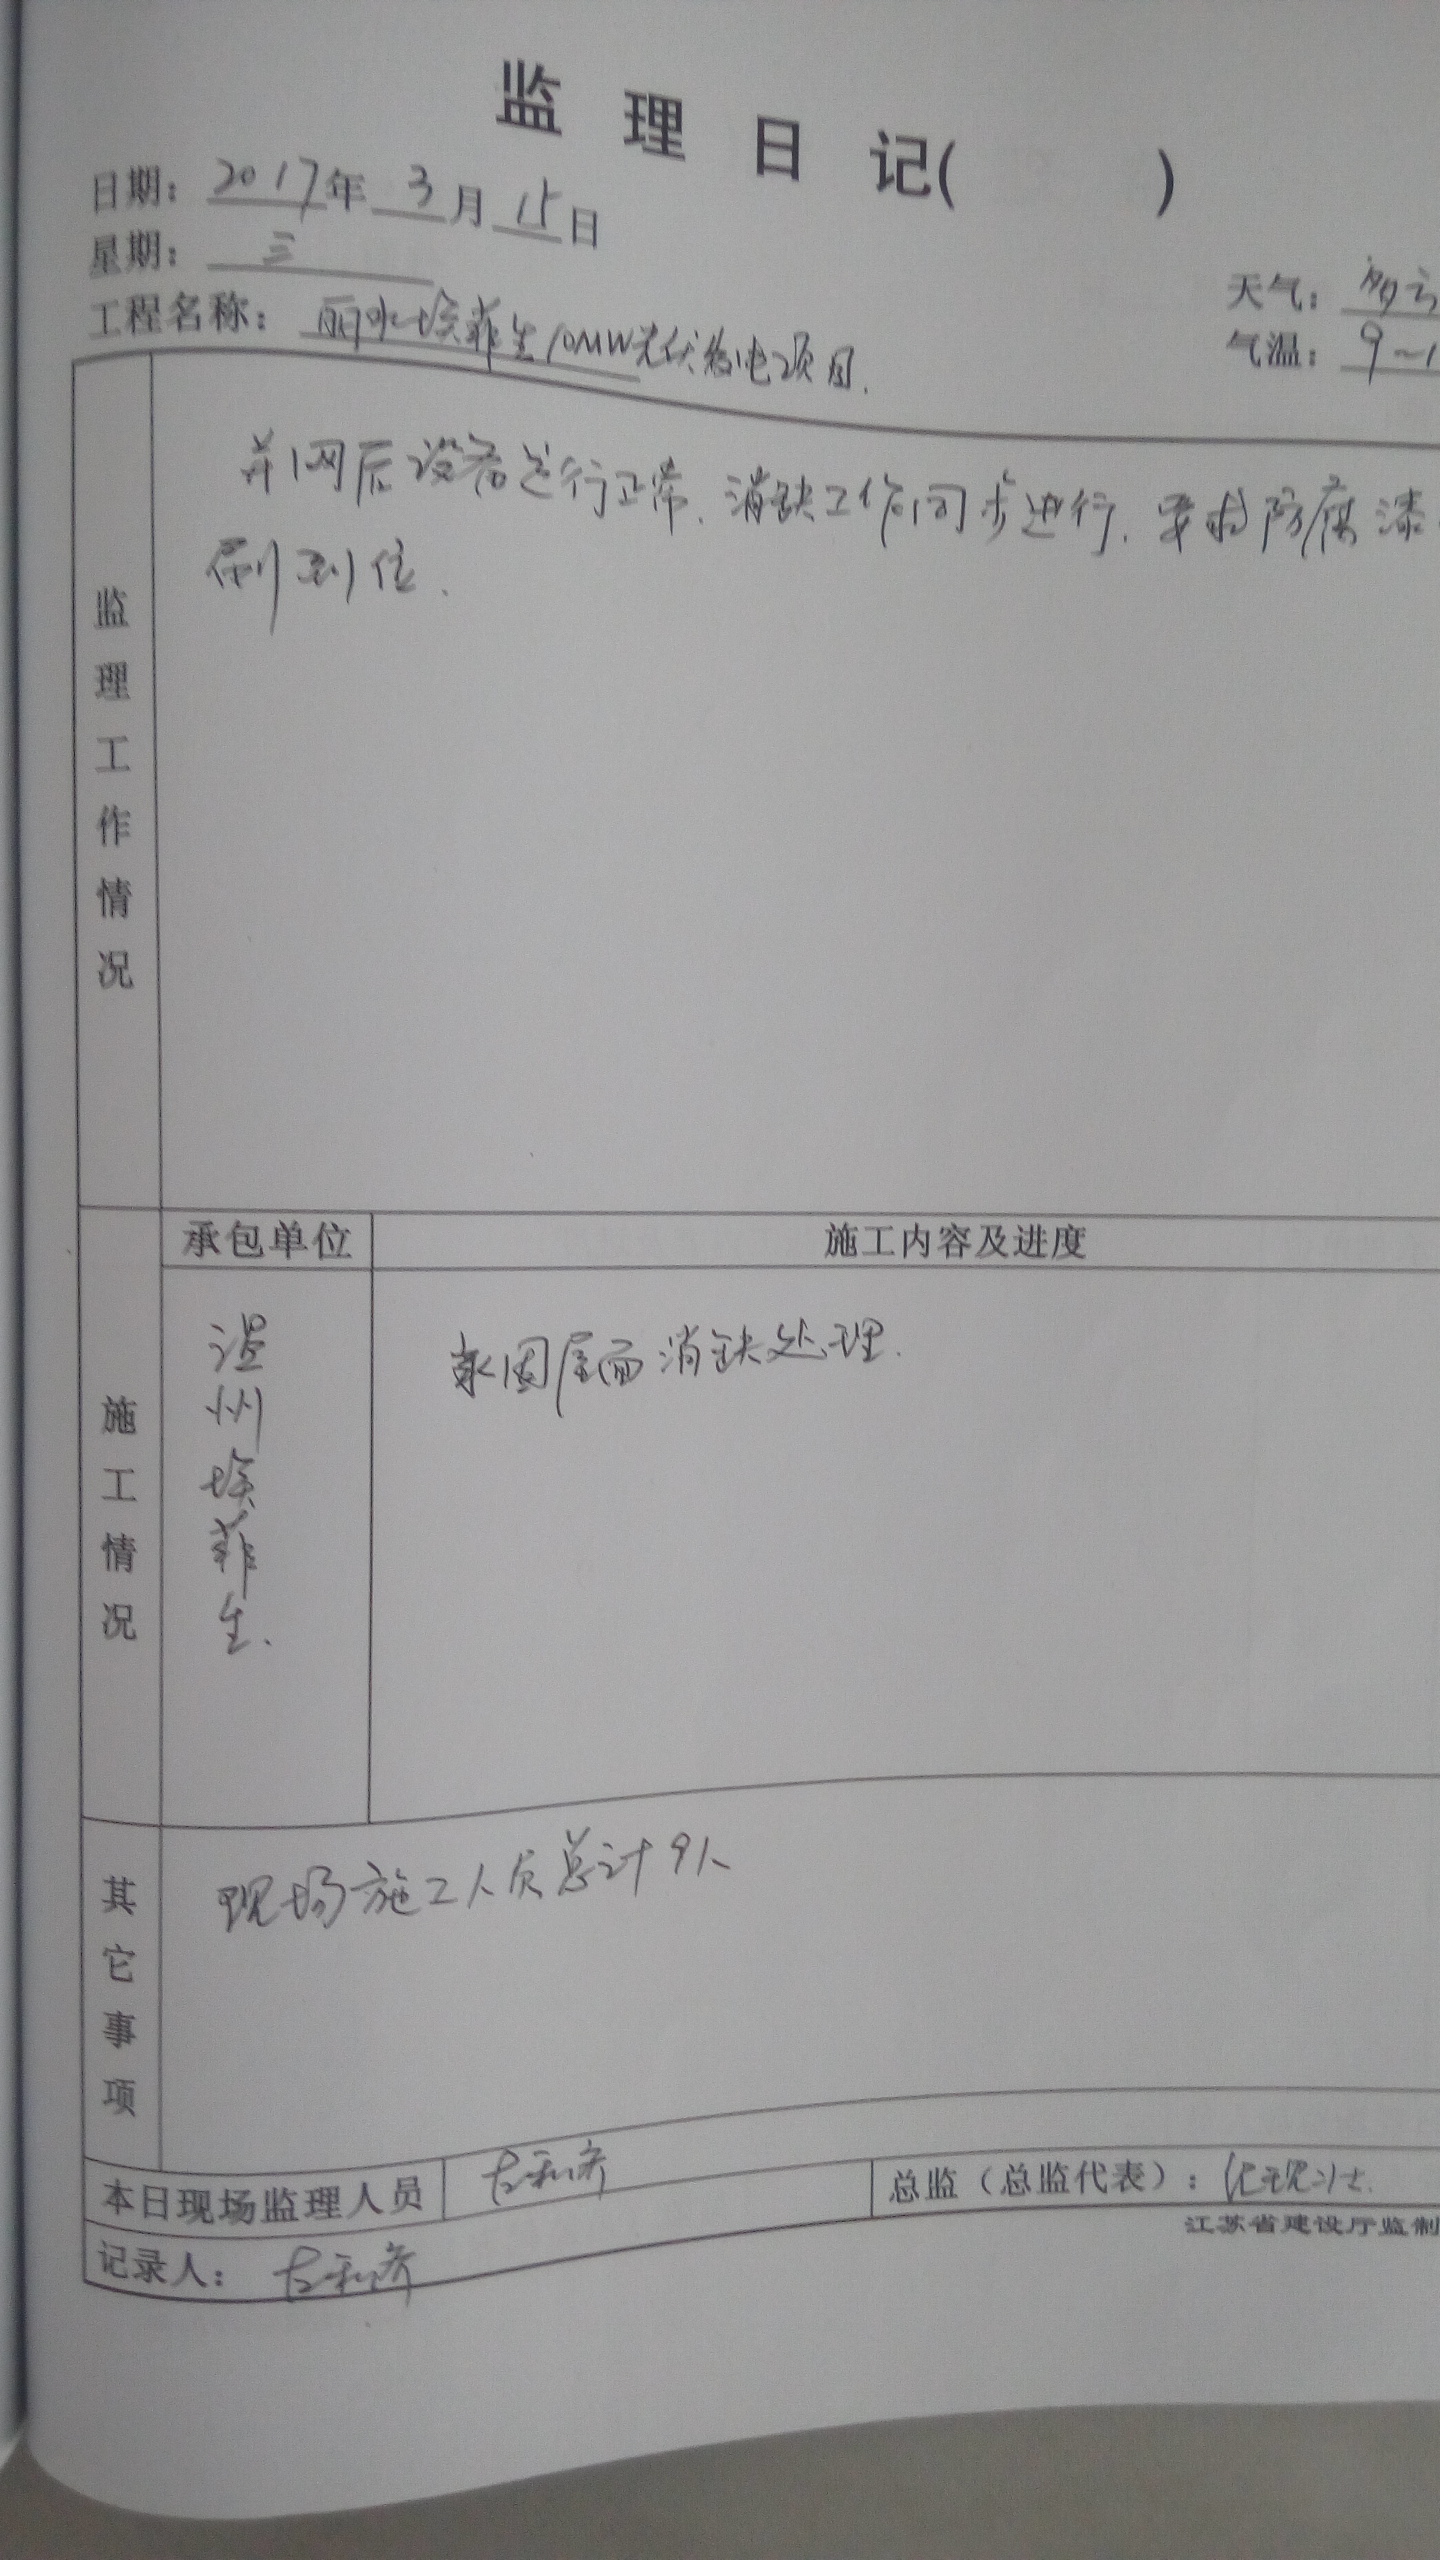 监理日记( )
日期：2017年3月15日
星期：三
天气：多云
工程名称：丽水埃菲生10MW光伏发电项目.
气温：9~1
监理工作情况
并网后设备运行正常.消缺工作同步进行.要求防腐漆
刷到位.
施工情况
承包单位
施工内容及进度
温州埃菲生.
屋面消缺处理.
其它事项
现场施工人员总计9人
本日现场监理人员
总监（总监代表）：
江苏省建设厅监制
记录人：